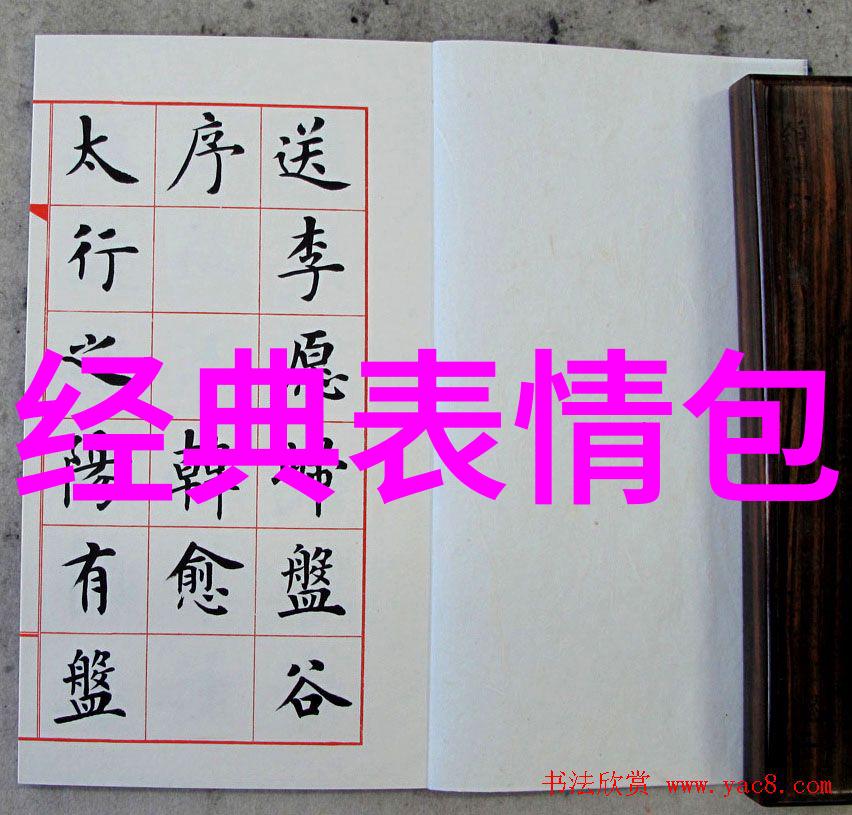 送李愿歸盤谷
序 韓愈
太行之陽有盤
经典表情包
书法欣赏 www.yac8.com